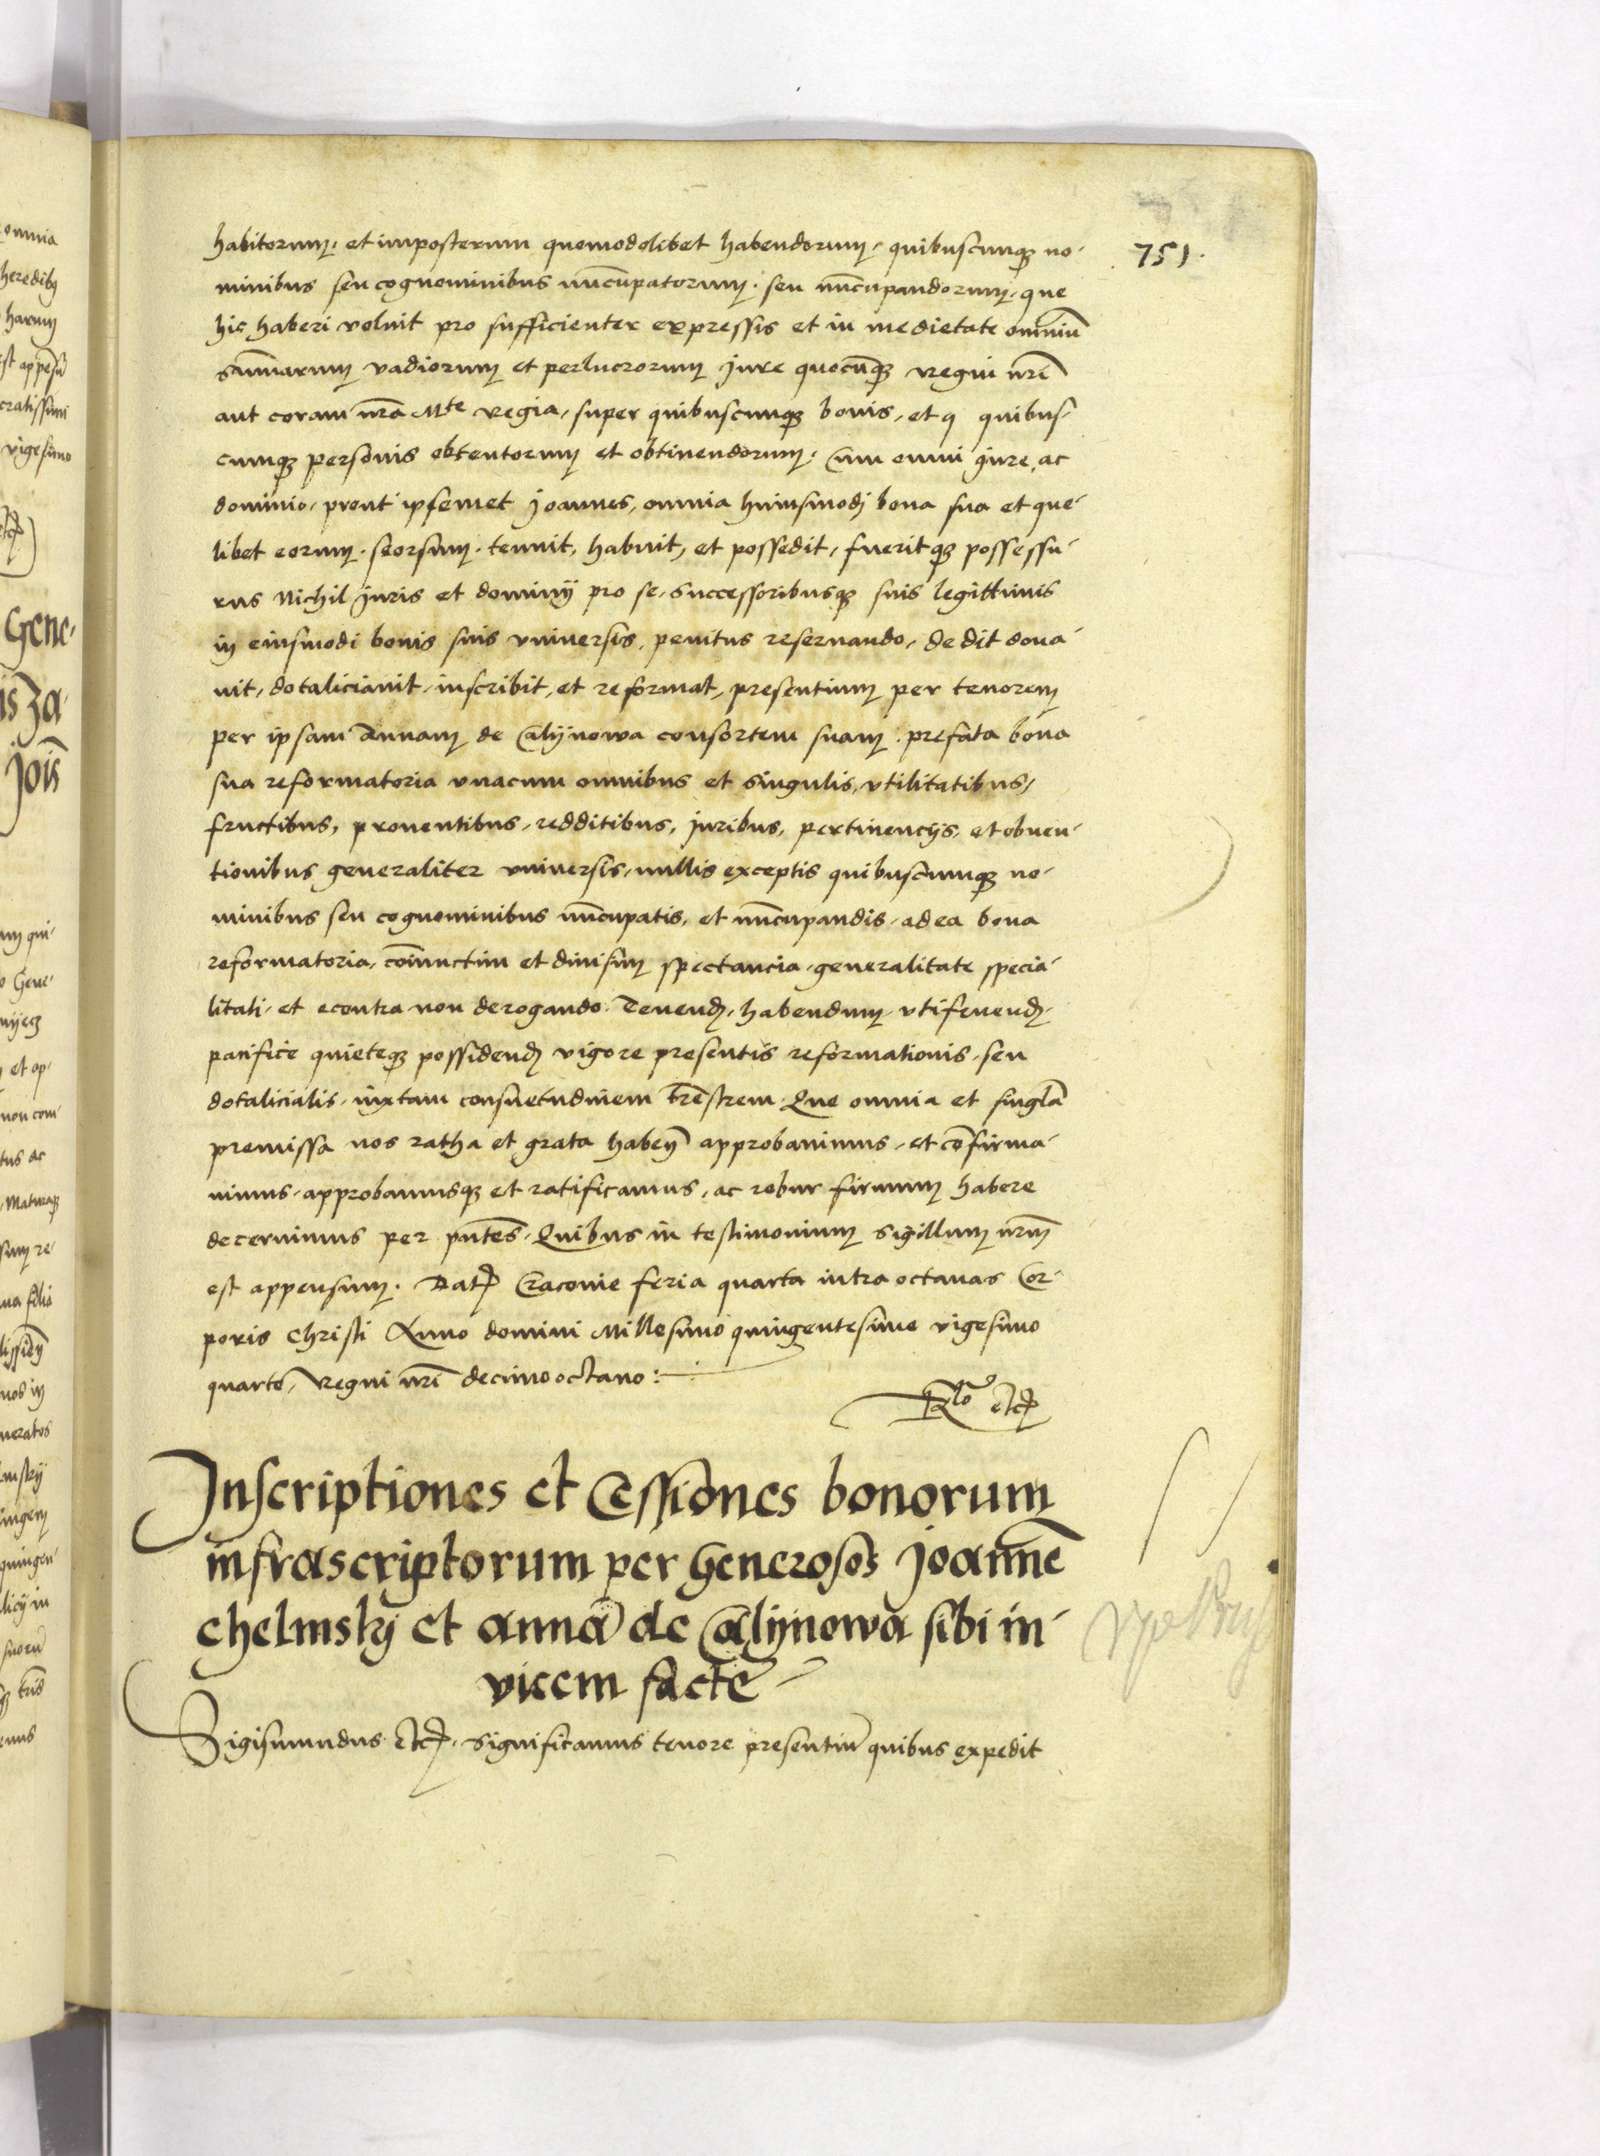 751.
habitorum, et imposterum quomodolibet habendorum, quibuscunqȝ no-
minibus seu cognominibus nūcupatorum, seu nūcupandorum, que
hic haberi voluit pro sufficienter expressis et in medietate omniū
sūmarum vadiorum et perlucrorum jure quocūqȝ regni nrī
aut coram nrā Mte regia, super quibuscunqȝ bonis, et q quibus-
cumqȝ personis obtentorum et obtinendorum, Cum omni jure, ac
dominio, prout ipsemet Joannes, omnia huiusmodj bona sua et que-
libet eorum, seorsum, tenuit, habuit, et possedit, fueritqȝ possessu-
rus Nichil juris et dominij pro se, successoribusqȝ suis legittimis
in eiusmodi bonis suis vniuersis, penitus reseruando, dedit dona-
uit, dotaliciauit, inscribit, et reformat, presentium per tenorem
per ipsam Annam de Calijnowa consortem suam, prefata bona
sua reformatoria vnacum omnibus et singulis, vtilitatibus,
fructibus, prouentibus, redditibus, juribus, pertinencijs, et obuen-
tionibus generaliter vniuersis, nullis exceptis quibuscunqȝ no-
minibus seu cognominibus nūcupatis, et nūcupandis, ad ea bona
reformatoria, cōiunctim et diuisim spectancia, generalitate specia-
litati, et econtra non derogando Tenend, habendum, vtifruend,
pacifice quieteqȝ possidend vigore presentis reformationis, seu
dotalicialis, iuxtam consuetudinem trēstrem. Que omnia et singlā
premissa nos ratha et grata habeñ approbauimus, et cōfirma-
uimus, approbamusqȝ et ratificamus, ac robur firmum habere
decernimus per pntēs, Quibus in testimonium sigillum nrm̄
est appensum. Dat Cracouie feria quarta intra octauas Cor-
poris Christi Anno domini Millesimo quingentesimo vigesimo
quarto, Regni nrī decimo octauo :
Rlo etc
Inscriptiones et Cessiones bonorum
infrascriptorum per Generosos Joannē
chelmskj et annā de Calijnowa sibi in-
vicem facte
Sigismundus etc. Significamus tenore presentiū quibus expedit